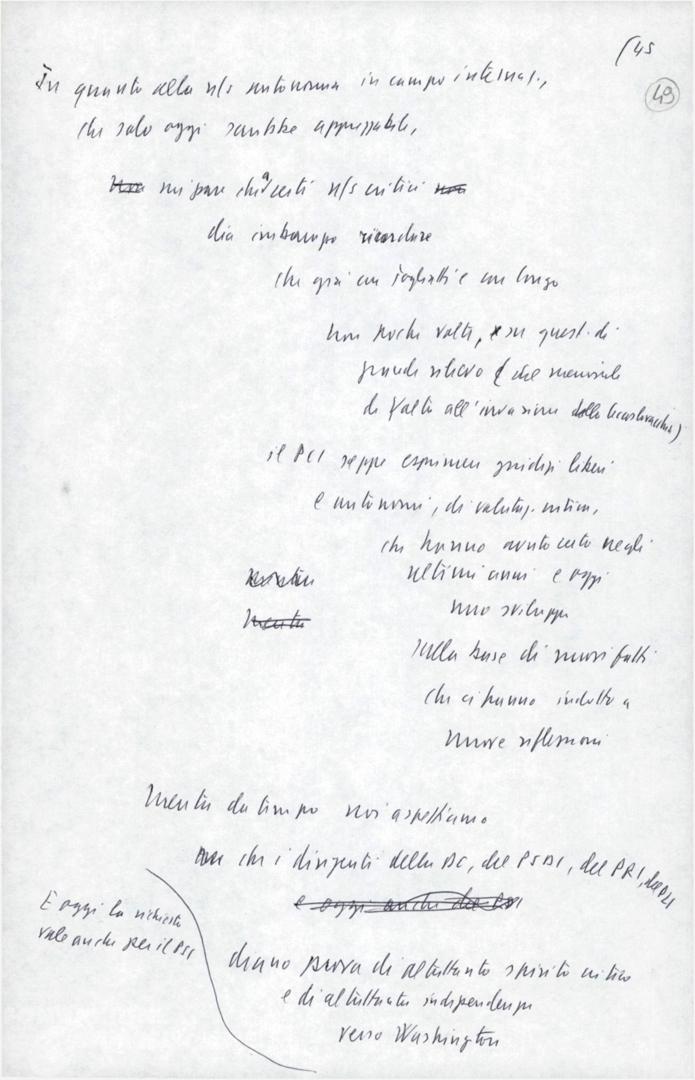 (45
49
In quanto alla n/s autonomia in campo internaz.,
che solo oggi sarebbe apprezzabile,
mi pare che a certi n/s critici
dia imbarazzo ricordare
che già con Togliatti e con Longo
non poche volte, su quest. di
grande rilievo (dal memoriale
di Yalta all'invasione della Cecoslovacchia)
il PCI seppe esprimere giudizi liberi
e autonomi, di valutaz. critica,
che hanno avuto certo negli
ultimi anni e oggi
uno sviluppo
sulla base di nuovi fatti
che ci hanno indotto a
nuove riflessioni
Mentre da tempo noi aspettiamo
che i dirigenti della DC, del PSDI, del PRI, del PLI
e oggi anche del PSI
E oggi la richiesta
vale anche per il PSI
diano prova di altrettanto spirito critico
e di altrettanta indipendenza
verso Washington